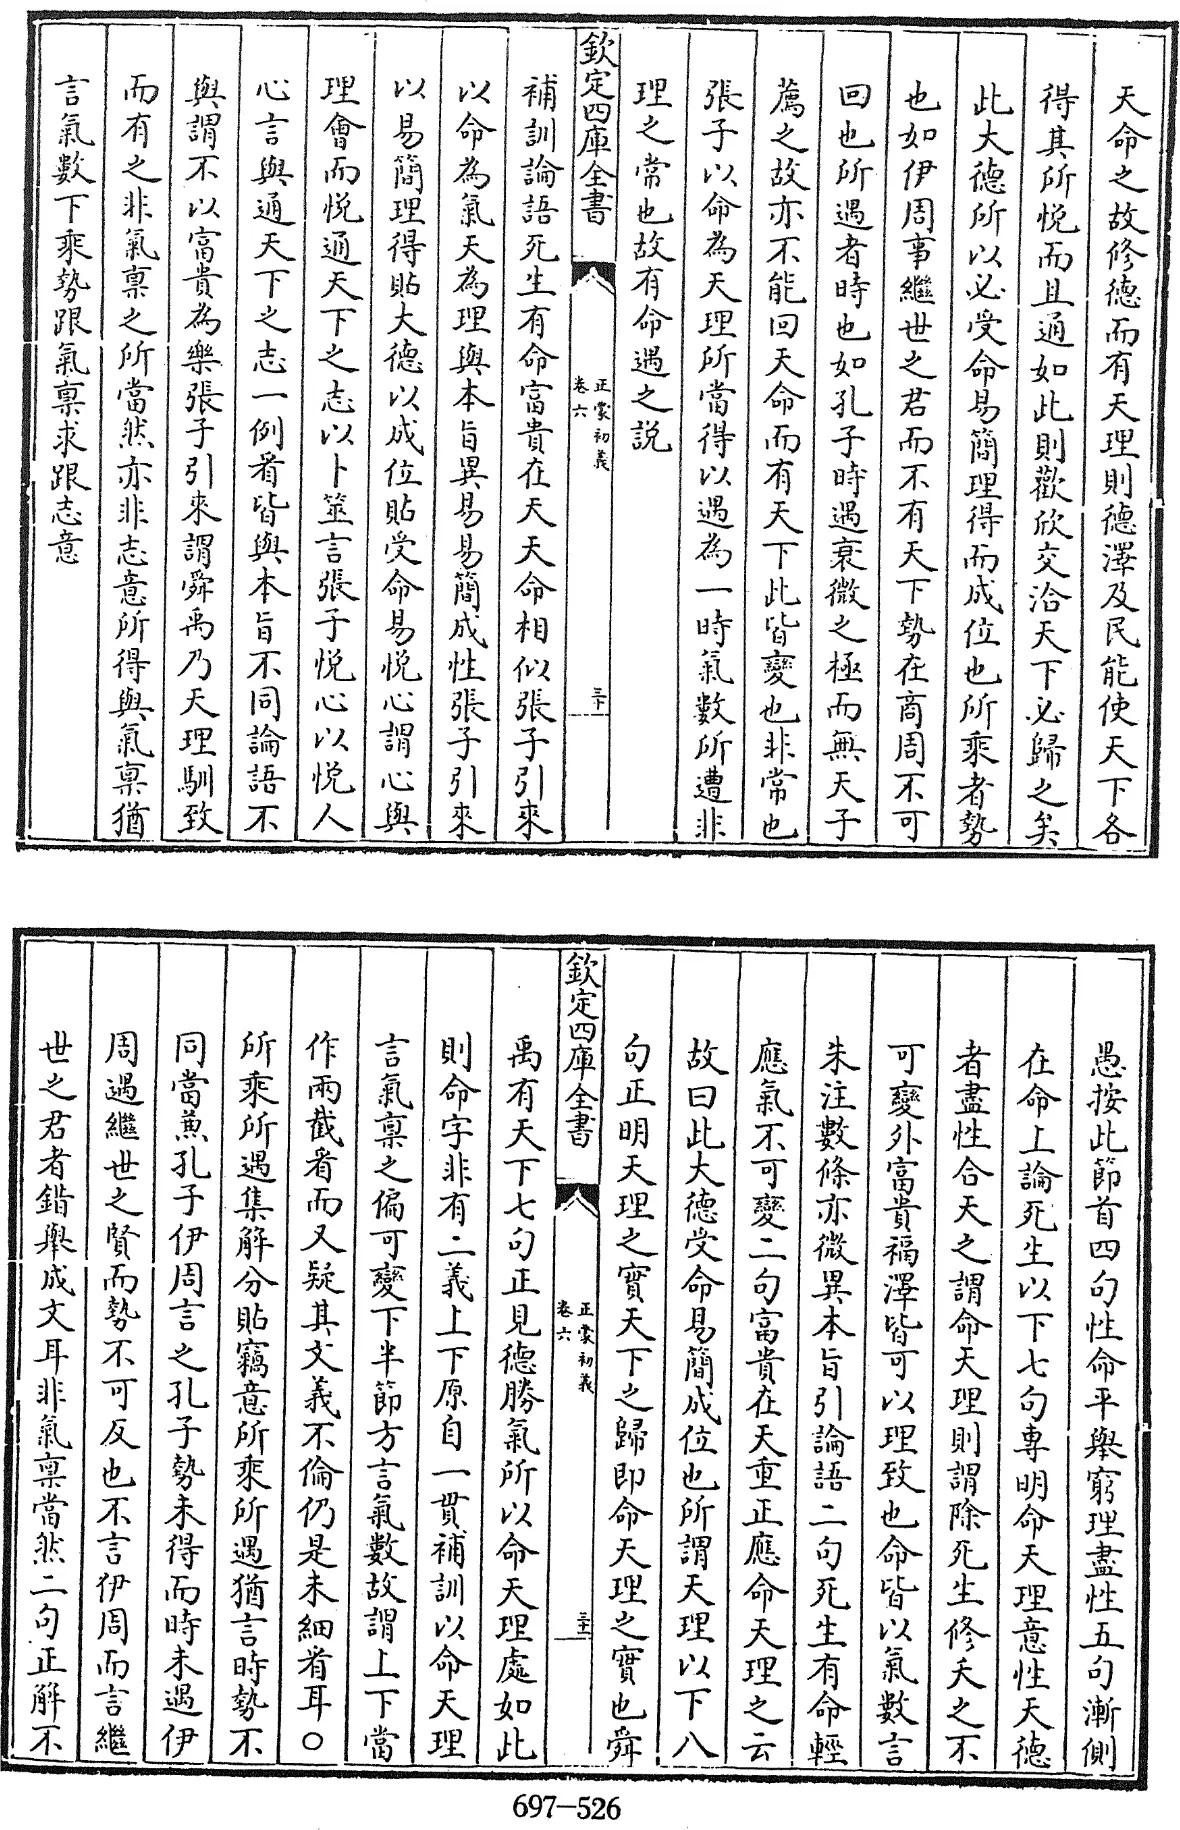 天命之故修德而有天理則德澤及民能使天下各
得其所悦而且通如此則歡欣交洽天下必歸之矣
此大德所以必受命易簡理得而成位也所乘者勢
也如伊周事繼世之君而不有天下勢在商周不可
回也所遇者時也如孔子時遇衰微之極而無天子
薦之故亦不能回天命而有天下此皆變也非常也
張子以命為天理所當得以遇為一時氣數所遭非
理之常也故有命遇之説
欽定四庫全書
正蒙初義
卷六
補訓論語死生有命富貴在天天命相似張子引來
以命為氣天為理與本旨異易易簡成性張子引來
以易簡理得貼大德以成位貼受命易悦心謂心與
理會而悦通天下之志以卜筮言張子悦心以悦人
心言與通天下之志一例看皆與本旨不同論語不
與謂不以富貴為樂張子引來謂舜禹乃天理馴致
而有之非氣稟之所當然亦非志意所得與氣稟猶
言氣數下乘勢跟氣稟求跟志意
愚按此節首四句性命平舉窮理盡性五句漸側
在命上論死生以下七句專明命天理意性天德
者盡性合天之謂命天理則謂除死生修夭之不
可變外富貴福澤皆可以理致也命皆以氣數言
朱注數條亦微異本旨引論語二句死生有命輕
應氣不可變二句富貴在天重正應命天理之云
故曰此大德受命易簡成位也所謂天理以下八
句正明天理之實天下之歸即命天理之實也舜
欽定四庫全書
正蒙初義
卷六
禹有天下七句正見德勝氣所以命天理處如此
則命字非有二義上下原自一貫補訓以命天理
言氣稟之偏可變下半節方言氣數故謂上下當
作兩截看而又疑其文義不倫仍是未細看耳○
所乘所遇集解分貼竊意所乘所遇猶言時勢不
同當兼孔子伊周言之孔子勢未得而時未遇伊
周遇繼世之賢而勢不可反也不言伊周而言繼
世之君者錯舉成文耳非氣稟當然二句正解不
697-526